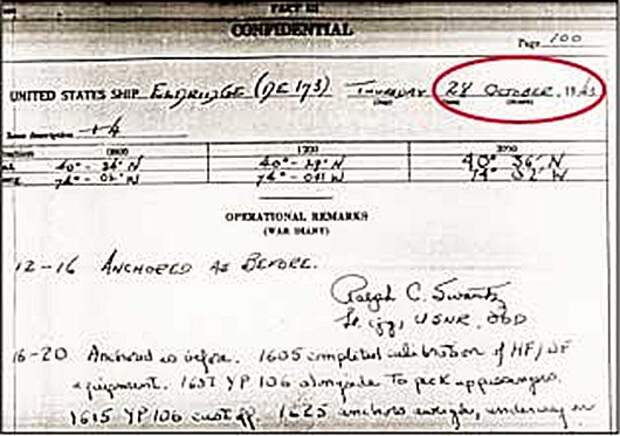 PART III
CONFIDENTIAL
Page 100
UNITED STATES SHIP ELDRIDGE (DE 173) THURSDAY 28 OCTOBER, 1943
Zone description +4
0800 1200 2000
40°-36' N 40° 36' N
74°-02' W 74° 02' W
OPERATIONAL REMARKS
(WAR DIARY)
12-16 ANCHORED AS BEFORE.
Ralph C. Swantz
Lt. (jg), USNR, OOD
16-20 Anchored as before. 1605 completed calibration of HF/DF
equipment. YP 106 alongside to pick up passengers.
1615 YP 106 cast off. 1625 anchors aweigh, underway in